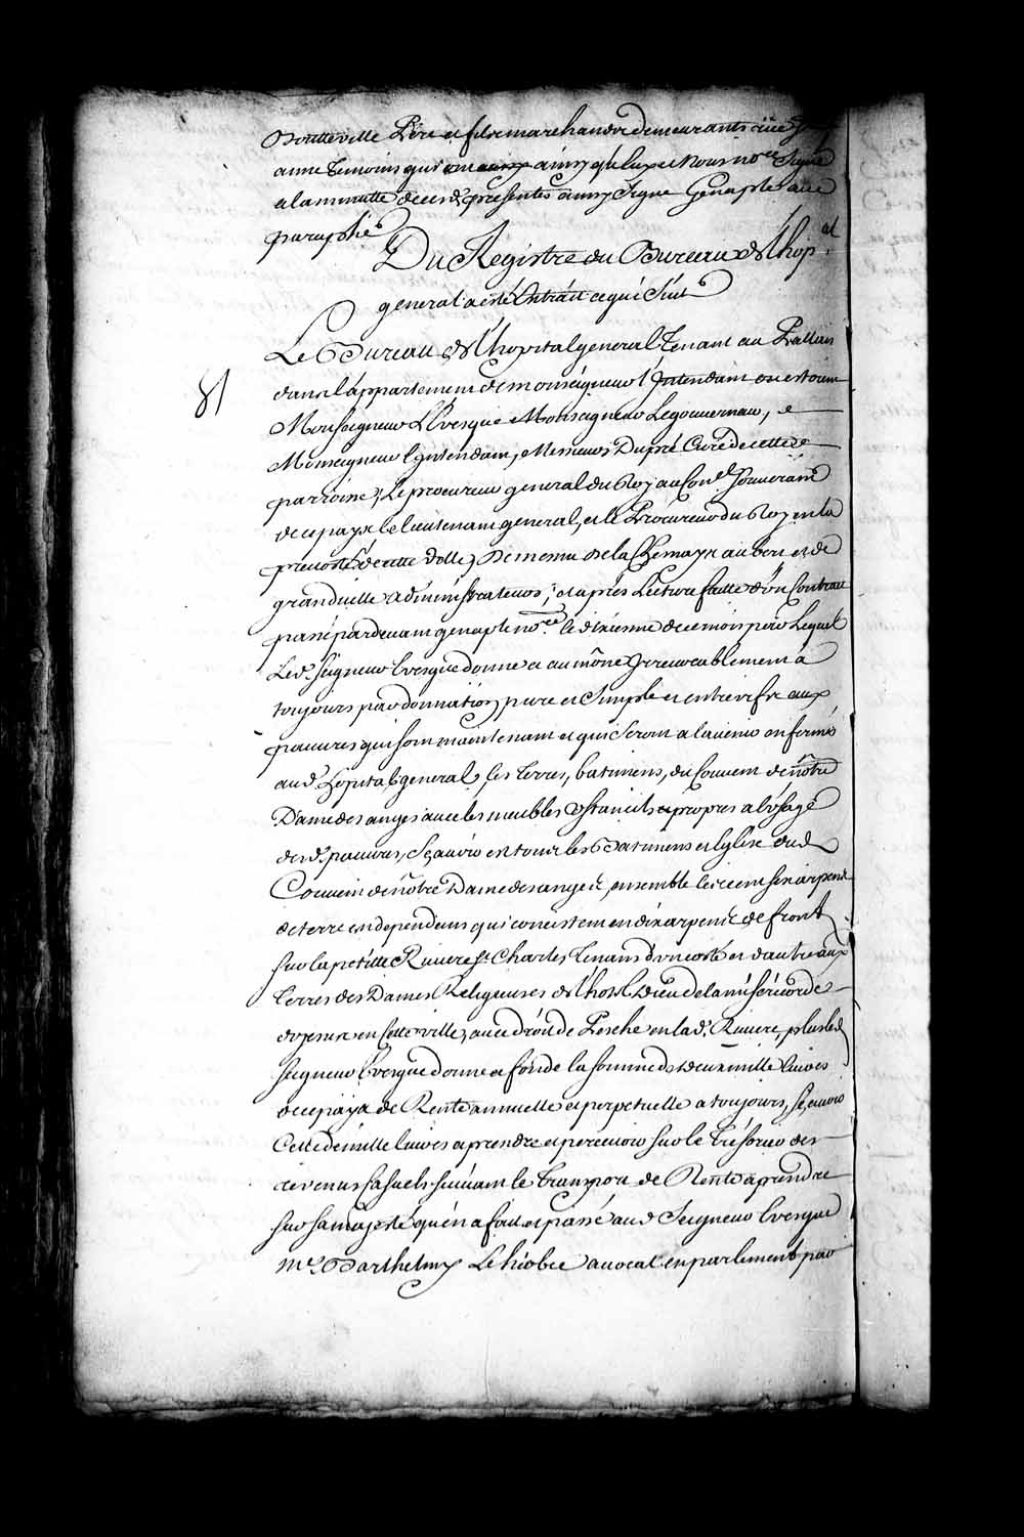 Boutteville Pere et fils marchands demeurants rüe Ste
anne temoins qui ont ainsy qle luy et nous nore signé
a la minutte des d. presentes ainsy signe Genaple avec
paraphe
Du Registre du Bureau de L'hopal
general a esté Extrait ce qui Suit
Le Bureau de L'hopital general Tenant au Pallais
81
dans l'appartement de monseigneur l'Intendant ou estoient
Monseigneur L'Evesque Monseigneur Le gouverneur, et
Monseigneur L'Intendant, Messieurs Dupré Curé de cette
parroisse, Le procureur general du Roy au Conel Souverain
de ce pays le lieutenant general, et le Procureur du Roy en la
prevosté de cette ville, De menu de la Chenaye aubert et de
grandville administrateurs; et aprés Lecture faitte d'un Contract
passé pardevant genaple nore le dixiesme de ce mois par Lequel
Led. seigneur Evesque donne et aumône Irrevocablement a
toujours par donnation pure et simple et entre vifs aux
pauvres qui sont maintenant et qui seront a l'avenir enfermés
aud. Lopital general, les terres, batimens, du Couvent de nôtre
Dame des anges avec les meubles Ustancils propres a l'usage
desd. pauvres, Sçavoir en tous les Batimens et Eglise dud
Couvent de nôtre Dame des anges, ensemble les cent six arpens
de terre en dependans qui consistent en dix arpens de front
sur la petitte Riviere St Charles Tenans d'un costé et d'autre aux
terres des Dames Religieuses de L'hotel Dieu de la miséricorde
de Jesus en Cette ville, avec droit de Pesche en lad. Riviere, plus led
seigneur Evesque donne et fonde la somme de deux mille livres
de ce pays de Rente annuelle et perpetuelle a toujours, Sçavoir
Cette de mille livres a prendre et percevoir sur le Trésorier des
revenus Casuels suivant le transport de Rente a prendre
sur sa majesté qu'en a fait et passé aud Seigneur Evesque
Me. Barthelmy Lehiobee avocat en parlement par